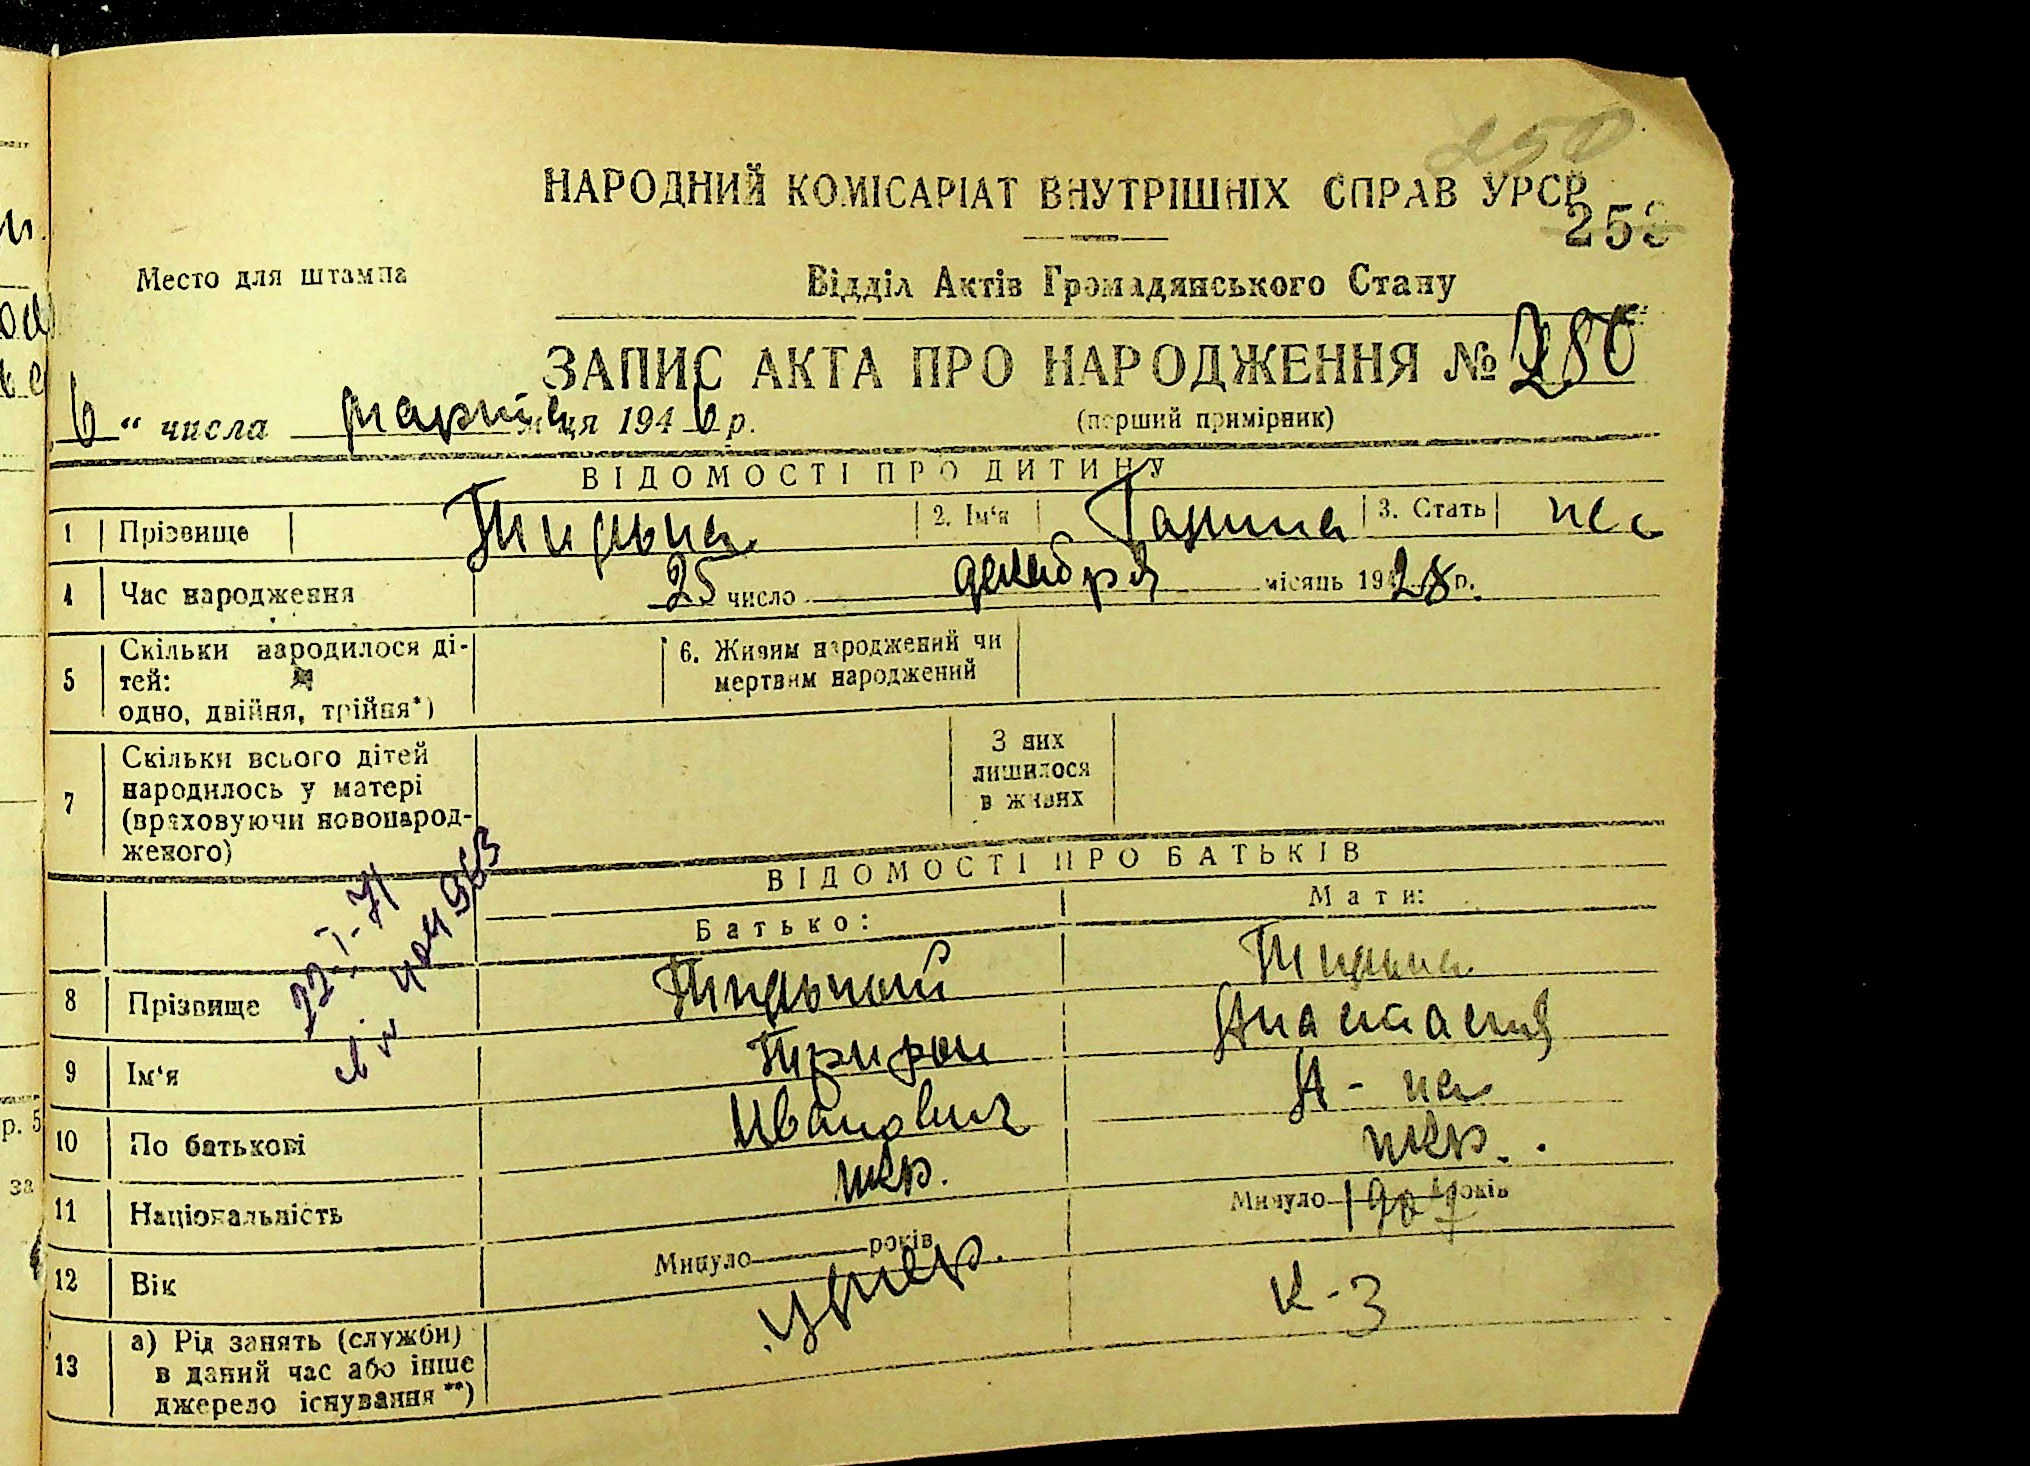 250
НАРОДНИЙ КОМІСАРІАТ ВНУТРІШНІХ СПРАВ УРСР
253
Место для штампа
Відділ Актів Громадянського Стану
ЗАПИС АКТА ПРО НАРОДЖЕННЯ № 250
6 “ числа марта місяця 1946 р.
(перший примірник)
ВІДОМОСТІ ПРО ДИТИНУ
1 Прізвище 2. Ім'я Галина 3. Стать
4 Час народження 25 число декабря місяць 1928 р.
5 Скільки народилося дітей: 6. Живим народжений чи
одно, двійня, трійня*) мертвим народжений
7 Скільки всього дітей З них
народилось у матері лишилося
(враховуючи новонарод- в живих
женого)
ВІДОМОСТІ ПРО БАТЬКІВ
Батько: Мати:
22-I-71
8 Прізвище
9 Ім'я Трифон Анастасия
10 По батькові Иванович А-на
11 Національність укр. укр.
12 Вік Минуло років Минуло 1907 років
13 а) Рід занять (служби) умер. к-з
в даний час або інше
джерело існування **)